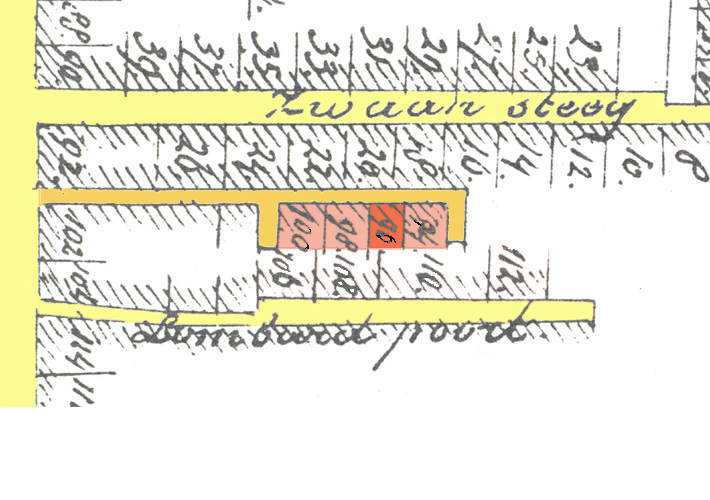 88
90 39. 37 35. 33. 31. 29. 27. 25. 23.
Zwaan steeg
92. 26. 24. 22. 20. 18. 16. 14. 12. 10. 8
102 100 98 96 94
104 106 108. 110. 112.
Lombard poort
114